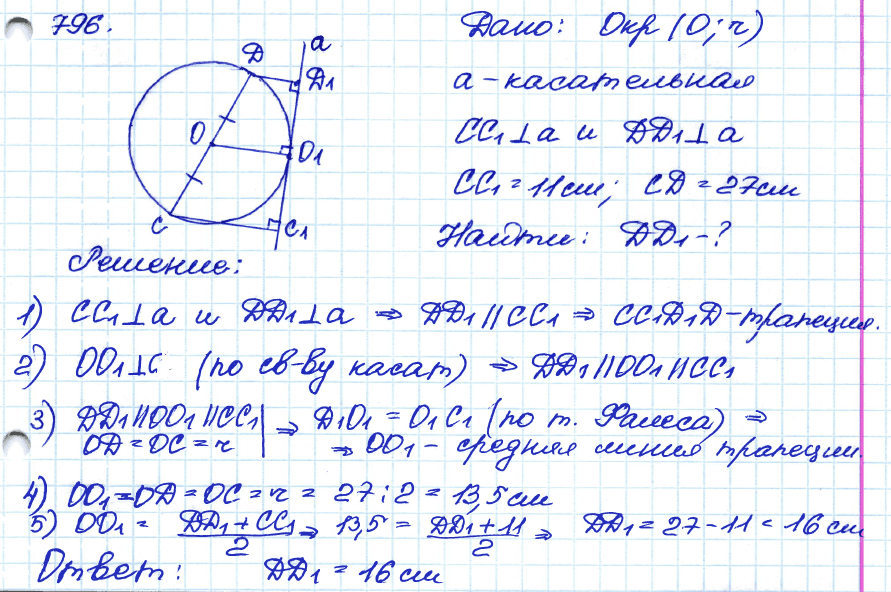 796.
Дано: Окр (О; r)
a - касательная
CC₁⊥a и DD₁⊥a
CC₁ = 11см; CD = 27см
Найти: DD₁ - ?
D a D₁
O O₁
C C₁
Решение:
1) CC₁⊥a и DD₁⊥a ⇒ DD₁∥CC₁ ⇒ CC₁D₁D - трапеция.
2) OO₁⊥C (по св-ву касат) ⇒ DD₁∥OO₁∥CC₁
3) DD₁∥OO₁∥CC₁ | ⇒ D₁O₁ = O₁C₁ (по т. Фалеса) ⇒
OD = OC = r | ⇒ OO₁ - средняя линия трапеции.
4) OO₁ = OD = OC = r = 27 : 2 = 13,5 см
5) OO₁ = (DD₁ + CC₁)/2 ⇒ 13,5 = (DD₁ + 11)/2 ⇒ DD₁ = 27 - 11 = 16 см
Ответ: DD₁ = 16 см